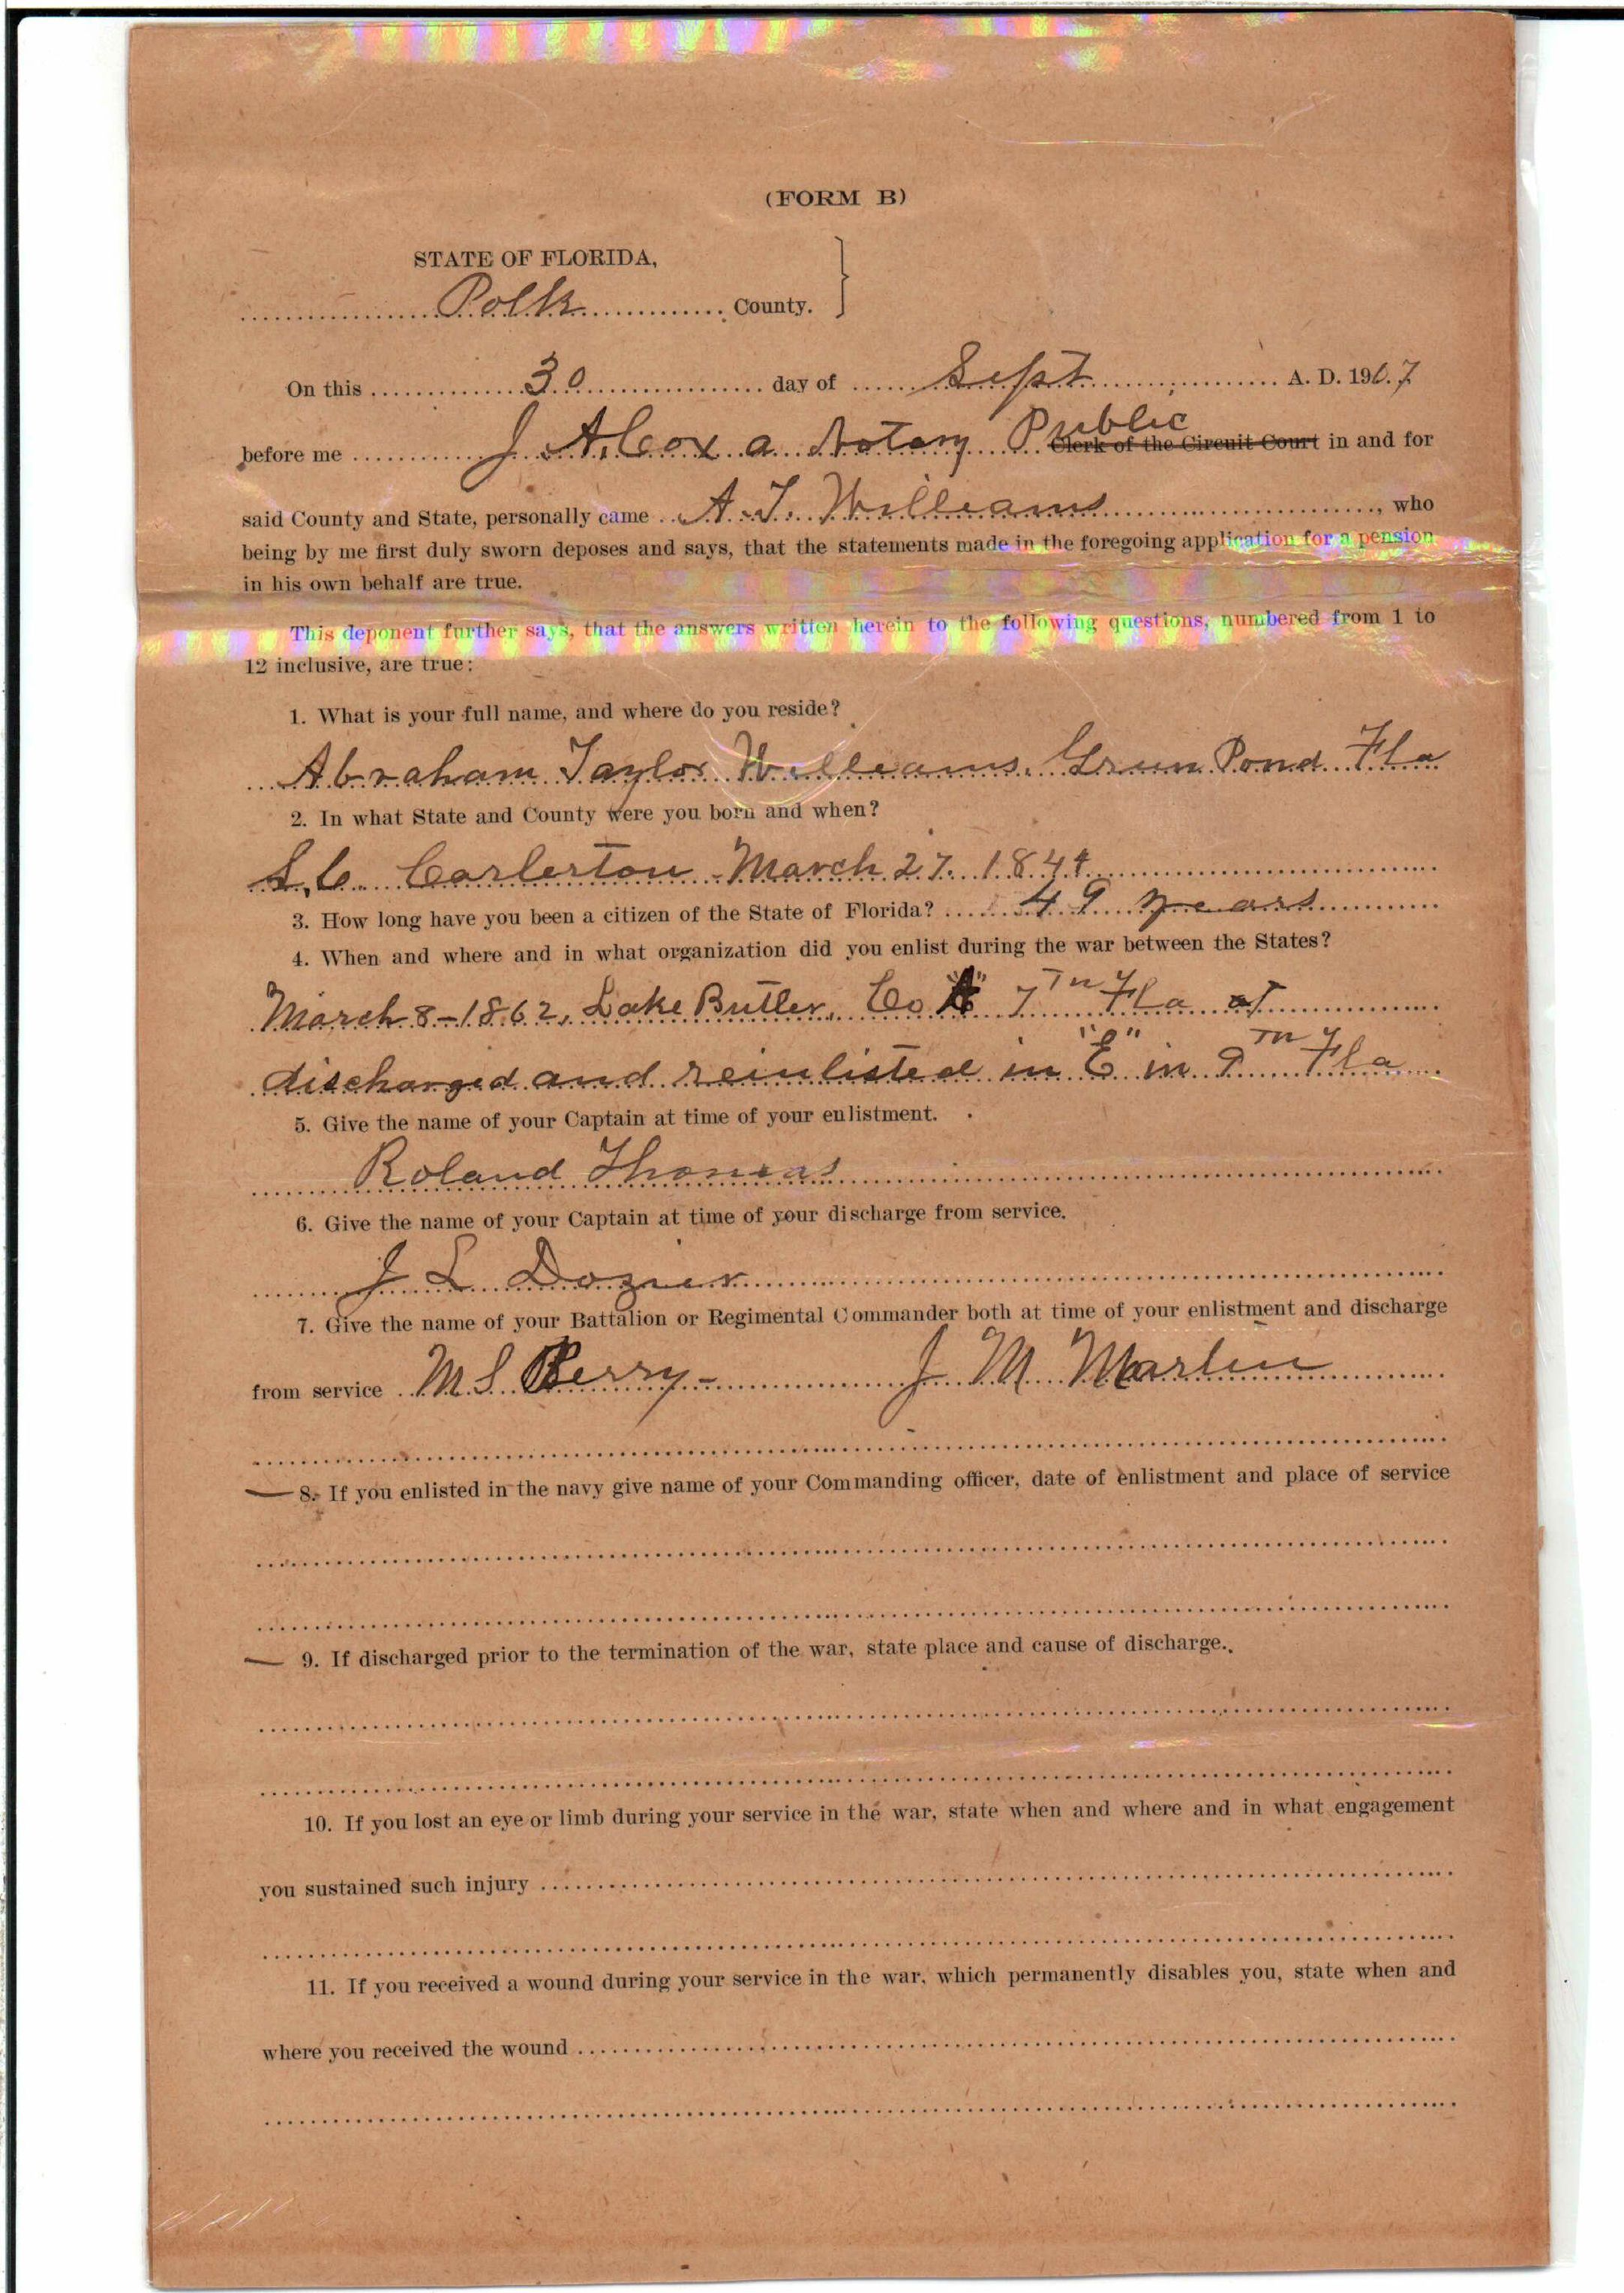 (FORM B)
STATE OF FLORIDA,
Polk County.
On this 30 day of Sept A. D. 1907
before me J A Cox a Notary Public Clerk of the Circuit Court in and for
said County and State, personally came A. T. Williams, who
being by me first duly sworn deposes and says, that the statements made in the foregoing application for a pension
in his own behalf are true.
This deponent further says, that the answers written herein to the following questions, numbered from 1 to
12 inclusive, are true:
1. What is your full name, and where do you reside?
Abraham Taylor Williams. Green Pond Fla
2. In what State and County were you born and when?
S.C. Carlerton March 27. 1844
3. How long have you been a citizen of the State of Florida? 49 years
4. When and where and in what organization did you enlist during the war between the States?
March 8-1862, Lake Butler, Co "A" 7th Fla
discharged and reinlisted in "E" in 9th Fla
5. Give the name of your Captain at time of your enlistment.
Roland Thomas
6. Give the name of your Captain at time of your discharge from service.
J L Dozier
7. Give the name of your Battalion or Regimental Commander both at time of your enlistment and discharge
from service M S Perry - J M Martin
8. If you enlisted in the navy give name of your Commanding officer, date of enlistment and place of service
9. If discharged prior to the termination of the war, state place and cause of discharge.
10. If you lost an eye or limb during your service in the war, state when and where and in what engagement
you sustained such injury
11. If you received a wound during your service in the war, which permanently disables you, state when and
where you received the wound